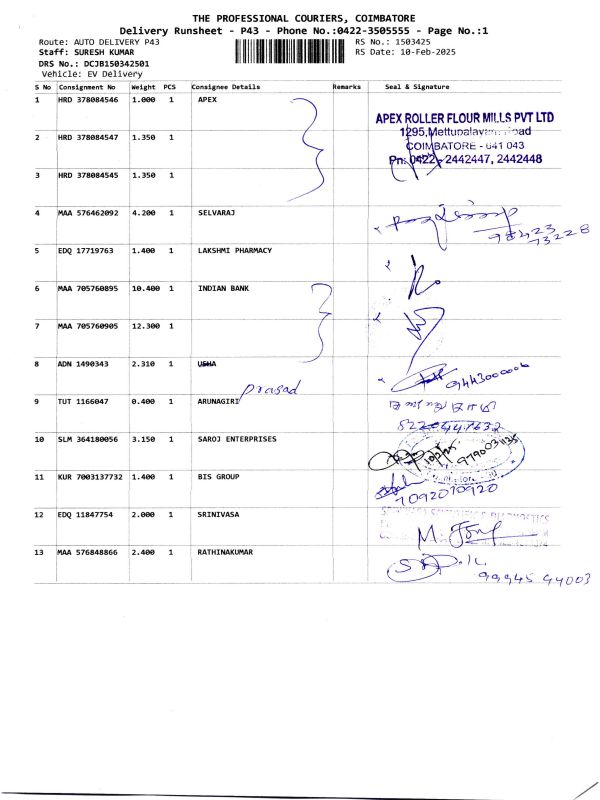 THE PROFESSIONAL COURIERS, COIMBATORE
Delivery Runsheet - P43 - Phone No.:0422-3505555 - Page No.:1
Route: AUTO DELIVERY P43 RS No.: 1503425
Staff: SURESH KUMAR RS Date: 10-Feb-2025
DRS No.: DCJB150342501
Vehicle: EV Delivery
S No Consignment No Weight PCS Consignee Details Remarks Seal & Signature
1 HRD 378084546 1.000 1 APEX
APEX ROLLER FLOUR MILLS PVT LTD
1295, Mettupalayam Road
2 HRD 378084547 1.350 1
COIMBATORE - 641 043
Ph: 0422 - 2442447, 2442448
3 HRD 378084545 1.350 1
4 MAA 576462092 4.200 1 SELVARAJ
98423
73228
5 EDQ 17719763 1.400 1 LAKSHMI PHARMACY
6 MAA 705760895 10.400 1 INDIAN BANK
7 MAA 705760905 12.300 1
8 ADN 1490343 2.310 1 USHA
9443000006
Prasad
9 TUT 1166047 0.400 1 ARUNAGIRI
10 SLM 364180056 3.150 1 SAROJ ENTERPRISES
11 KUR 7003137732 1.400 1 BIS GROUP
7092070920
12 EDQ 11847754 2.000 1 SRINIVASA
13 MAA 576848866 2.400 1 RATHINAKUMAR
99945 94003